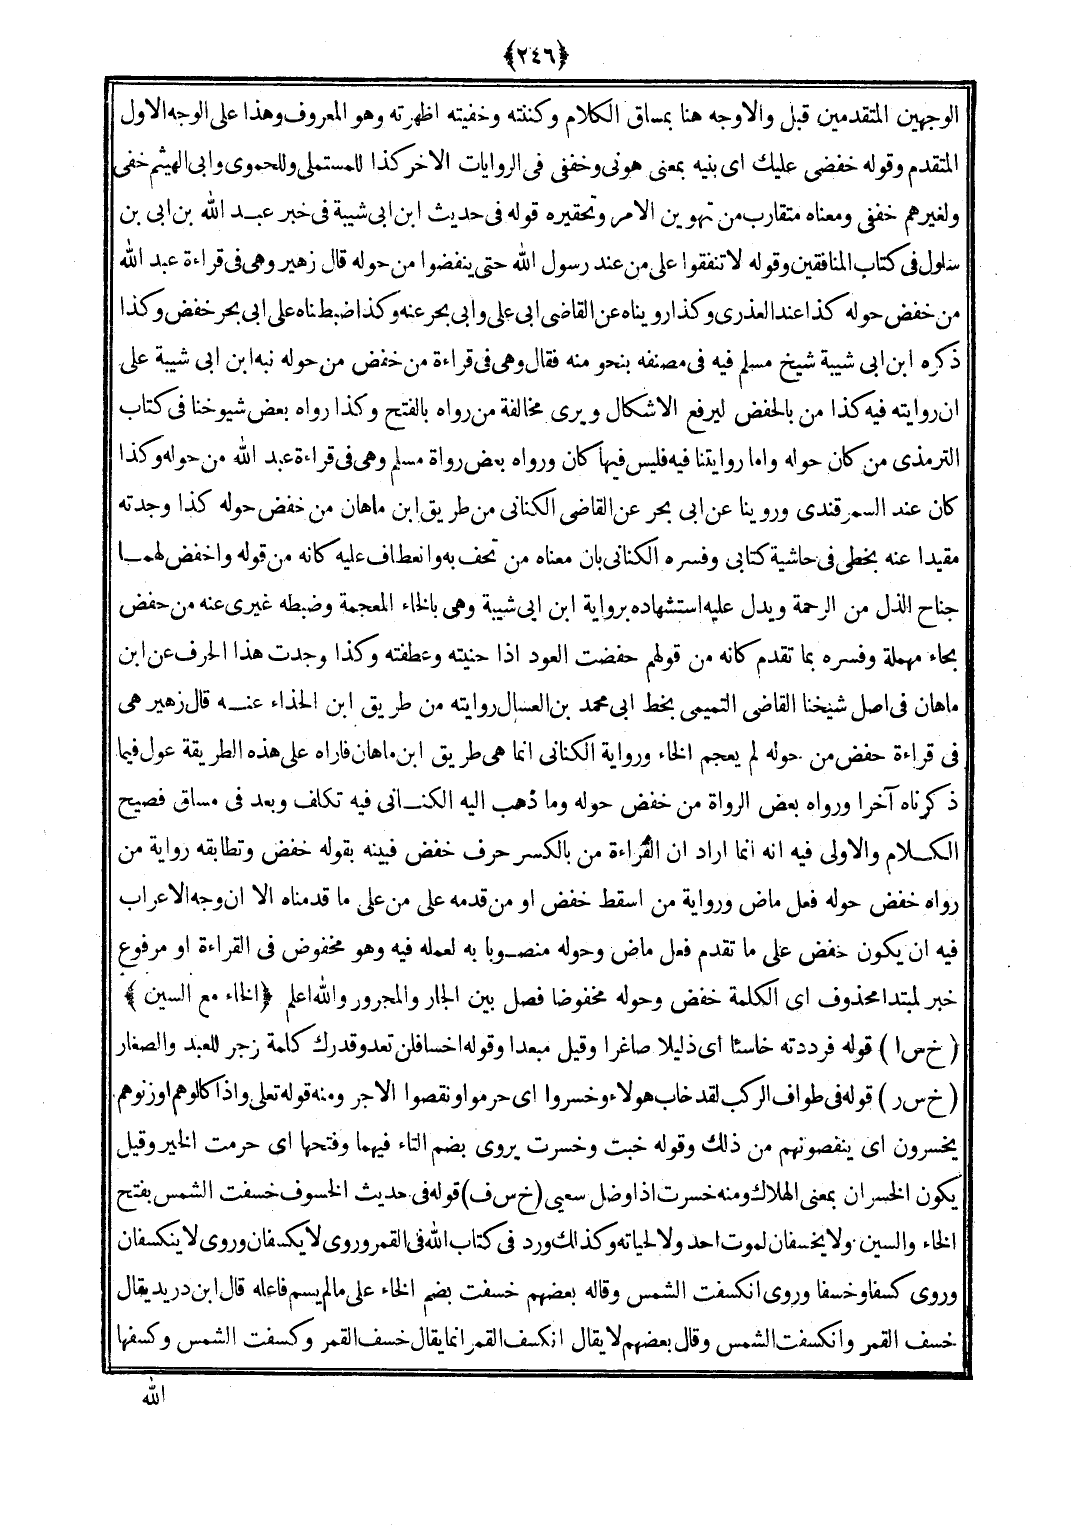 ﴿٢٤٦﴾
الوجهين المتقدمين قبل والاوجه هنا بمساق الكلام وكننته وخفيته اظهرته وهو المعروف وهذا على الوجه الاول
المتقدم وقوله خفضى عليك اى بنيه بمعنى هونى وخففى فى الروايات الاخر كذا للمستملى وللحموى وابى الهيثم خفى
ولغيرهم خففى ومعناه متقارب من تهوين الامر وتحقيره قوله فى حديث ابن ابى شيبة فى خبر عبد الله بن ابى بن
سلول فى كتاب المنافقين وقوله لا تنفقوا على من عند رسول الله حتى ينفضوا من حوله قال زهير وهى فى قراءة عبد الله
من خفض حوله كذا عند العذرى وكذا رويناه عن القاضى ابى على وابى بحر عنه وكذا ضبطناه على ابى بحر خفض وكذا
ذكره ابن ابى شيبة شيخ مسلم فيه فى مصنفه بنحو منه فقال وهى فى قراءة من خفض من حوله نبه ابن ابى شيبة على
ان روايته فيه كذا من بالخفض ليرفع الاشكال ويرى مخالفة من رواه بالفتح وكذا رواه بعض شيوخنا فى كتاب
الترمذى من كان حوله واما روايتنا فيه فليس فيها كان ورواه بعض رواة مسلم وهى فى قراءة عبد الله من حوله وكذا
كان عند السمرقندى وروينا عن ابى بحر عن القاضى الكنانى من طريق ابن ماهان من خفض حوله كذا وجدته
مقيدا عنه بخطى فى حاشية كتابى وفسره الكنانى بان معناه من تحف به وانعطاف عليه كانه من قوله واخفض لهمــا
جناح الذل من الرحمة ويدل عليه استشهاده برواية ابن ابى شيبة وهى بالخاء المعجمة وضبطه غيرى عنه من حفض
بحاء مهملة وفسره بما تقدم كانه من قولهم حفضت العود اذا حنيته وعطفته وكذا وجدت هذا الحرف عن ابن
ماهان فى اصل شيخنا القاضى التميمى بخط ابى محمد بن العسال روايته من طريق ابن الحذاء عنــه قال زهير هى
فى قراءة حفض من حوله لم يعجم الخاء ورواية الكنانى انما هى طريق ابن ماهان فاراه على هذه الطريقة عول فيما
ذكرناه آخرا ورواه بعض الرواة من خفض حوله وما ذهب اليه الكنــانى فيه تكلف وبعد فى مساق فصيح
الكــلام والاولى فيه انه انما اراد ان القراءة من بالكسر حرف خفض فبينه بقوله خفض وتطابقه رواية من
رواه خفض حوله فعل ماض ورواية من اسقط خفض او من قدمه على من على ما قدمناه الا ان وجه الاعراب
فيه ان يكون خفض على ما تقدم فعل ماض وحوله منصــوبا به لعمله فيه وهو مخفوض فى القراءة او مرفوع
خبر لمبتدا محذوف اى الكلمة خفض وحوله مخفوضا فصل بين الجار والمجرور والله اعلم ﴿الخاء مع السين﴾
(خ س ا) قوله فرددته خاسئا اى ذليلا صاغرا وقيل مبعدا وقوله اخسا فلن تعدو قدرك كلمة زجر للعبد والصغار
(خ س ر) قوله فى طواف الركب لقد خاب هولاء وخسروا اى حرموا ونقصوا الاجر ومنه قوله تعلى واذا كالوهم او زنوهم
يخسرون اى ينقصونهم من ذلك وقوله خبت وخسرت يروى بضم التاء فيهما وفتحها اى حرمت الخير وقيل
يكون الخسران بمعنى الهلاك ومنه خسرت اذا وضل سعيى (خ س ف) قوله فى حديث الخسوف خسفت الشمس بفتح
الخاء والسين ولا يخسفان لموت احد ولا لحياته وكذلك ورد فى كتاب الله فى القمر وروى لا يكسفان وروى لا ينكسفان
وروى كسفا وخسفا وروى انكسفت الشمس وقاله بعضهم خسفت بضم الخاء على ما لم يسم فاعله قال ابن دريد يقال
خسف القمر وانكسفت الشمس وقال بعضهم لا يقال انكسف القمر انما يقال خسف القمر وكسفت الشمس وكسفها
الله